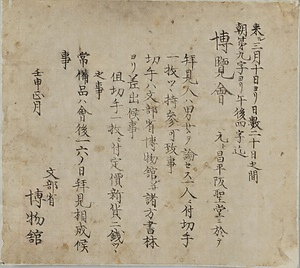 来ル三月十日ヨリ日数二十日之間
朝第九字ヨリ午後四字迄
博覧會 元昌平阪聖堂ニ於テ
拝見人ハ男女ヲ論セス一人ニ付切手
一枚ツヽ持参可致事
切手ハ文部省博物館並諸方書林
ヨリ差出候事
但切手一枚ニ付定價新貨二銭ツヽ
之事
常備品ハ會後一六ノ日拝見相成候
事
壬申正月
文部省
博物館